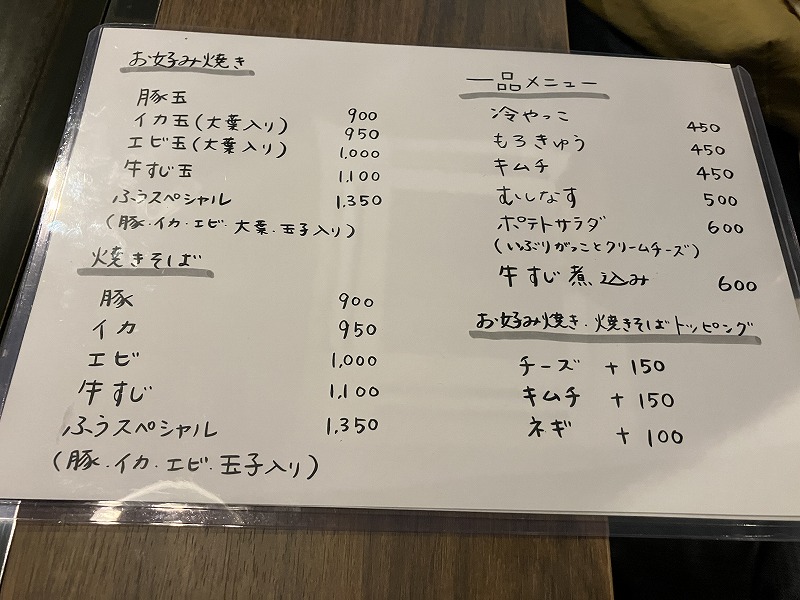 お好み焼き
豚玉 900
イカ玉(大葉入り) 950
エビ玉(大葉入り) 1,000
牛すじ玉 1,100
ふうスペシャル 1,350
(豚・イカ・エビ・大葉・玉子入り)
焼きそば
豚 900
イカ 950
エビ 1,000
牛すじ 1,100
ふうスペシャル 1,350
(豚・イカ・エビ・玉子入り)
一品メニュー
冷やっこ 450
もろきゅう 450
キムチ 450
むしなす 500
ポテトサラダ 600
(いぶりがっことクリームチーズ)
牛すじ煮込み 600
お好み焼き・焼きそばトッピング
チーズ +150
キムチ +150
ネギ +100